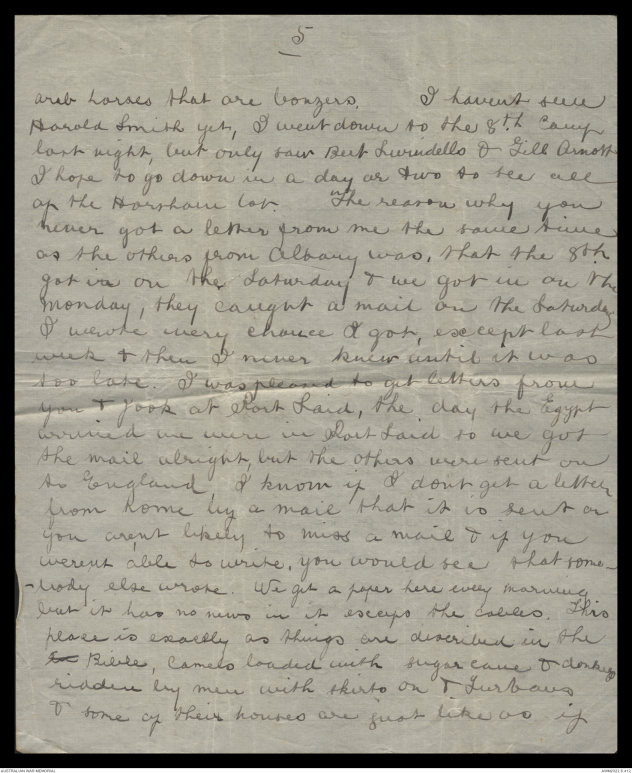 5
arab horses that are bonzers. I havent seen
Harold Smith yet, I went down to the 8th Camp
last night, but only saw Bert & Gill Arnott
I hope to go down in a day or two to see all
of the Horsham lot. The reason why you
never got a letter from me the same time
as the others from Albany was, that the 8th
got in on the Saturday & we got in on the
Monday, they caught a mail on the Saturday
I wrote every chance I got, except last
week & then I never knew until it was
too late. I was pleased to get letters from
you & Jook at Port Said, the day the Egypt
arrived we were in Port Said so we got
the mail alright, but the others were sent on
to England, I know if I dont get a letter
from home by a mail that it is sent on
you arent likely to miss a mail & if you
werent able to write, you would see that some-
-body else wrote. We get a paper here every morning
but it has no news in it except the cables. This
place is exactly as things are described in the
Bible, Camels loaded with sugar cane & donkeys
ridden by men with skirts on & Turbans
& some of their houses are just like as if
AUSTRALIAN WAR MEMORIAL